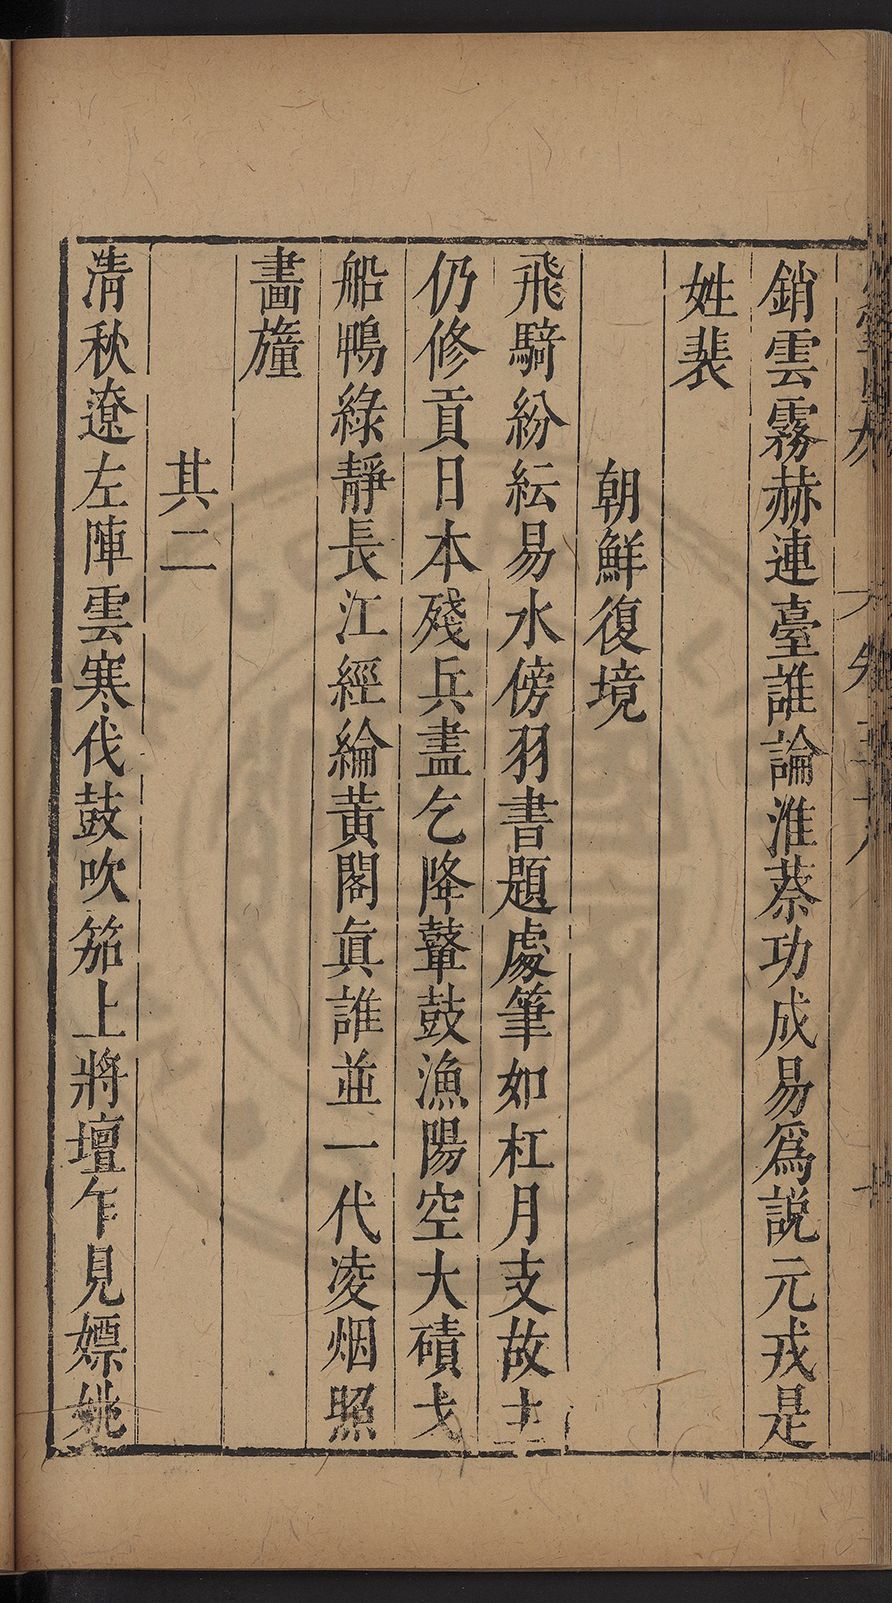 銷雲霧赫連臺誰論淮蔡功成易爲説元戎是
姓裴
朝鮮復境
飛騎紛紜易水傍羽書題處筆如杠月支故土
仍修貢日本殘兵盡乞降鼙鼓漁陽空大磧戈
船鴨綠靜長江經綸黃閣眞誰並一代凌烟照
畫旛
其二
清秋遼左陣雲寒伐鼓吹笳上將壇乍見嫖姚